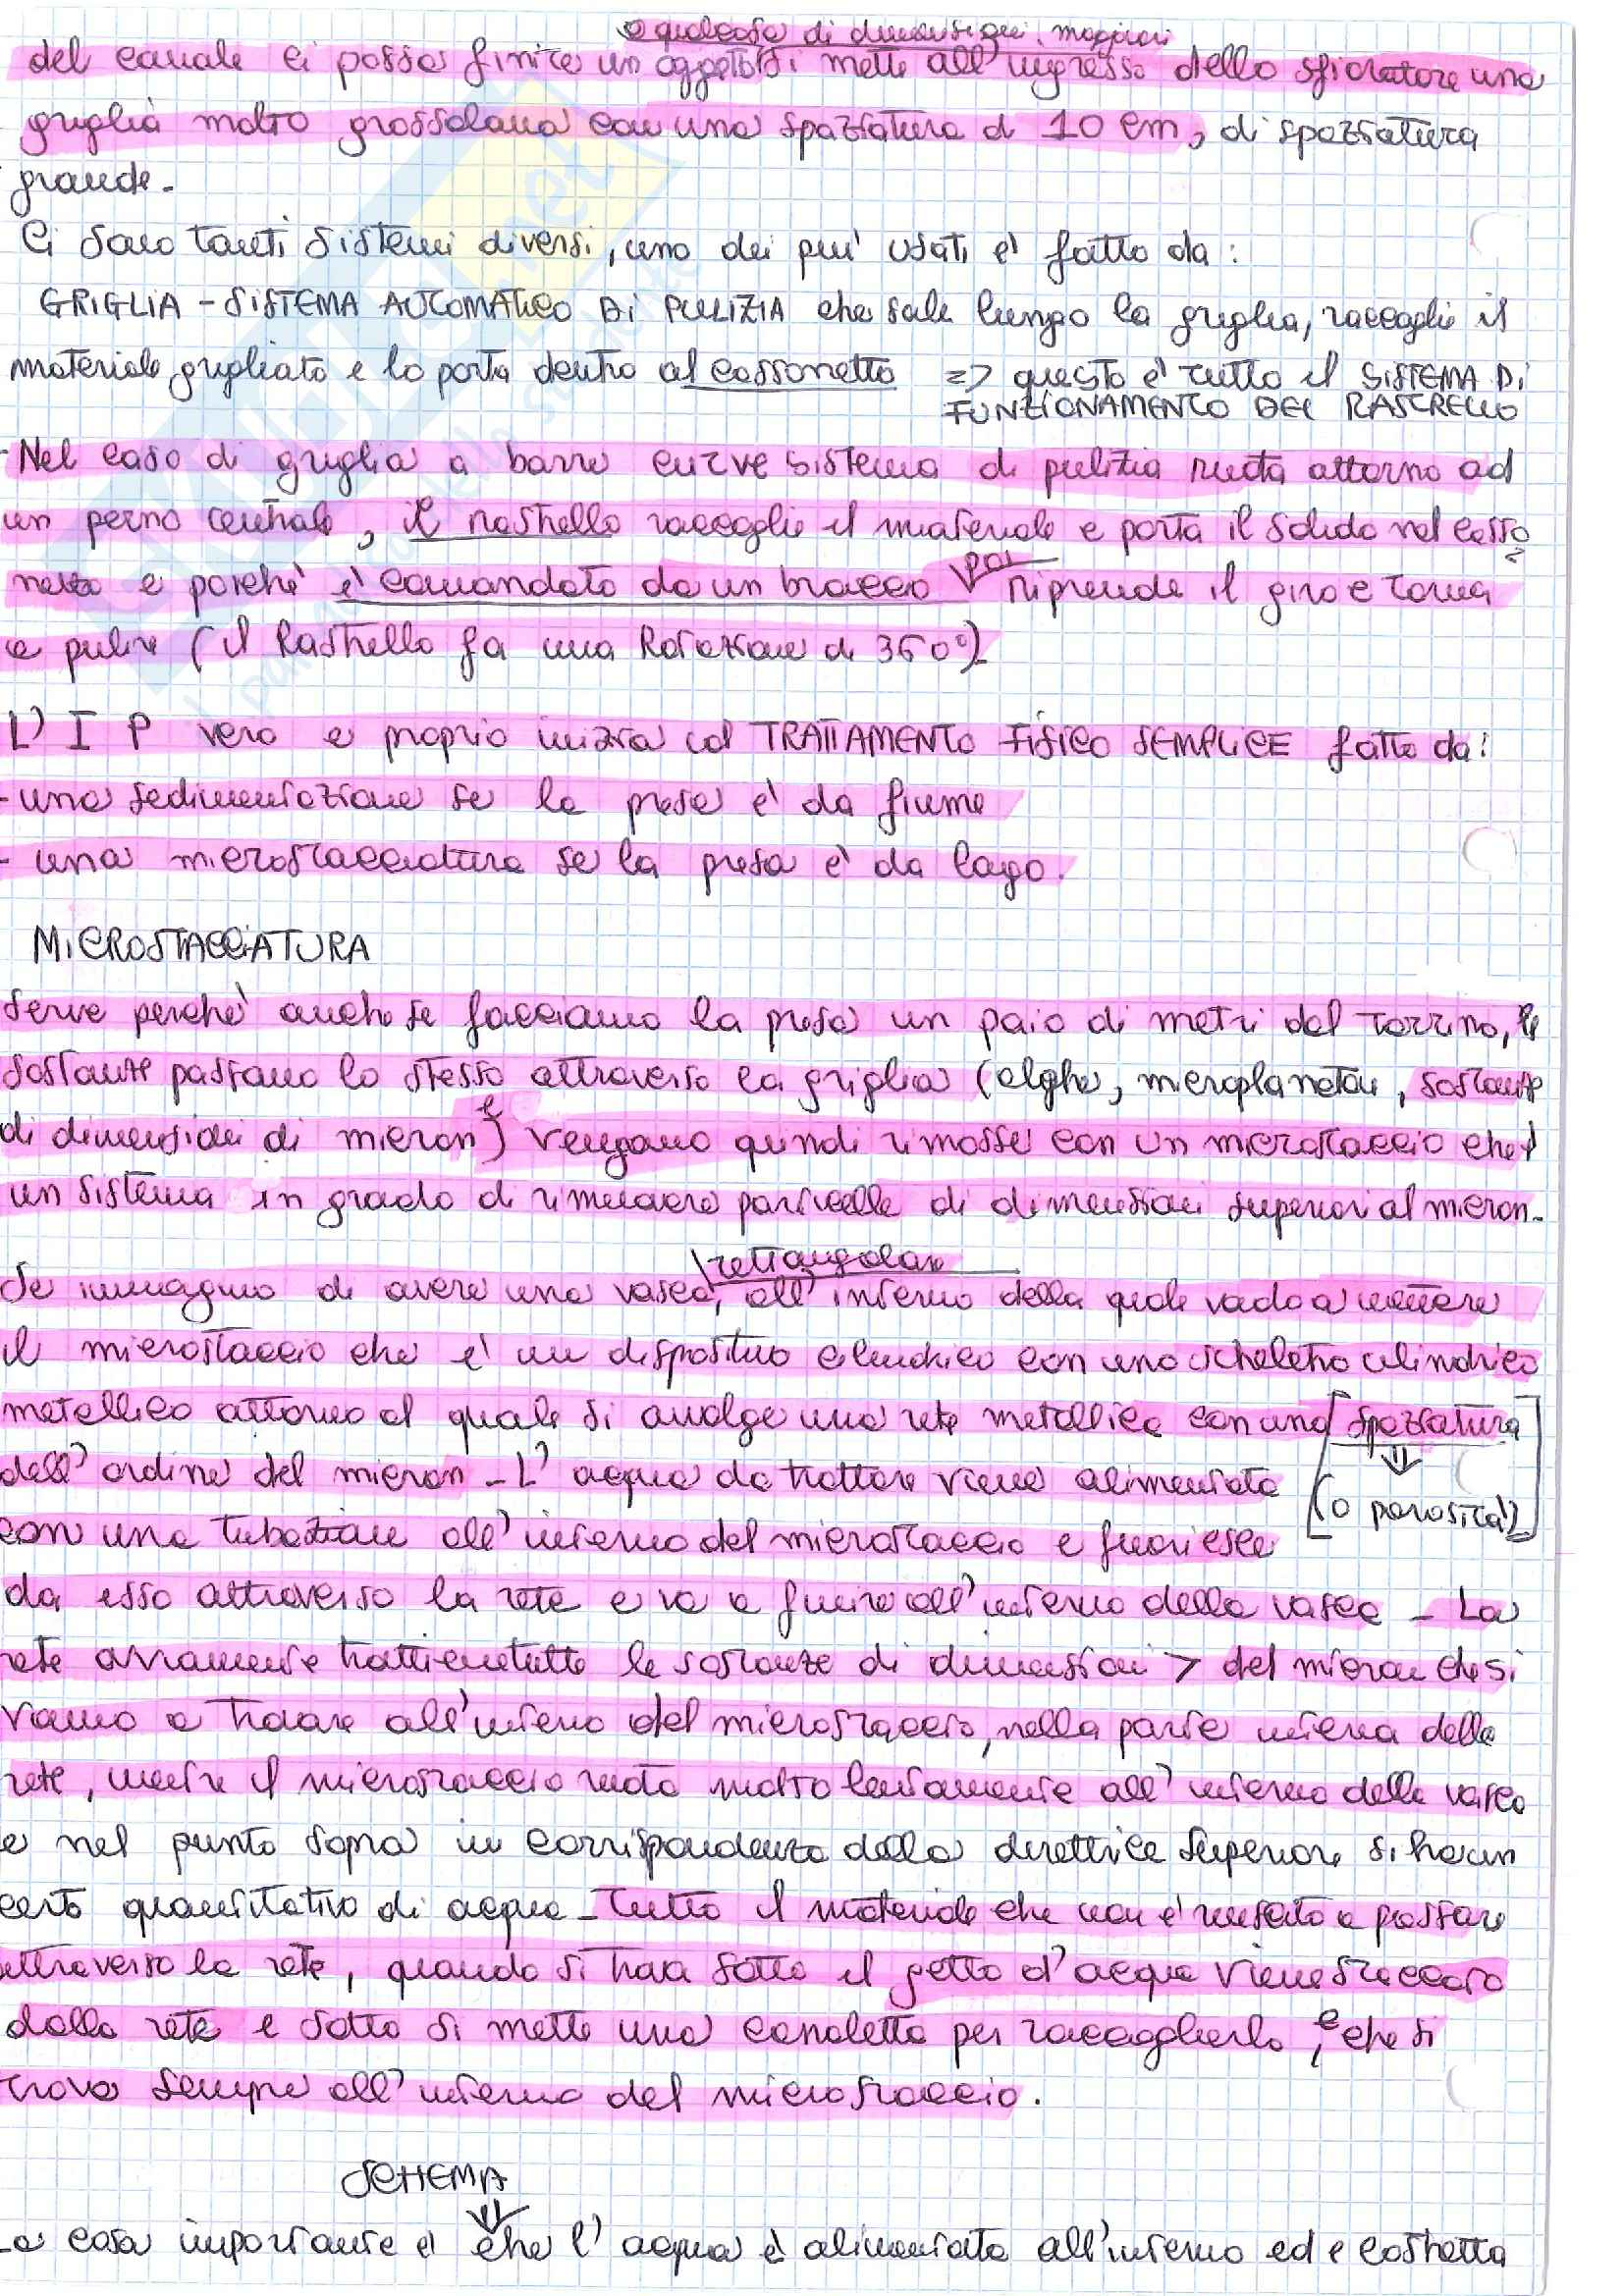 o qualcosa di dimensioni maggiori
del canale ci possa finire un oggetto si mette all'ingresso dello sfioratore una
griglia molto grossolana con una spaziatura di 10 cm, di spaziatura
grande.
Ci sono tanti sistemi diversi, uno dei piu' usati e' fatto da:
GRIGLIA - SISTEMA AUTOMATICO DI PULIZIA che sale lungo la griglia, raccoglie il
materiale grigliato e lo porta dentro al cassonetto => questo e' tutto il SISTEMA DI
FUNZIONAMENTO DEL RASTRELLO
- Nel caso di griglia a barre curve sistema di pulizia ruota attorno ad
un perno centrale, il rastrello raccoglie il materiale e porta il solido nel casso
netto e poiche' e' comandato da un braccio poi riprende il giro e torna
a pulire (il Rastrello fa una Rotazione di 360°)
L' I P vero e proprio inizia col TRATTAMENTO FISICO SEMPLICE fatto da:
- una sedimentazione se la presa e' da fiume
- una microstacciatura se la presa e' da lago.
MICROSTACCIATURA
Serve perche' anche se facciamo la presa un paio di metri dal torrino, le
sostanze passano lo stesso attraverso la griglia (alghe, microplancton, sostanze
di dimensioni di micron) e vengono quindi rimosse con un microstaccio che e'
un sistema in grado di rimuovere particelle di dimensioni superiori al micron.
Se immagino di avere una vasca rettangolare, all'interno della quale vado a mettere
il microstaccio che e' un dispositivo cilindrico con uno scheletro cilindrico
metallico attorno al quale si avvolge una rete metallica con una [spaziatura
⇓
(o porosita')]
dell'ordine del micron - L'acqua da trattare viene alimentata
con una tubazione all'interno del microstaccio e fuoriesce
da esso attraverso la rete e va a finire all'interno della vasca - La
rete ovviamente trattiene tutte le sostanze di dimensioni > del micron che si
vanno a trovare all'interno del microstaccio, nella parte interna della
rete, mentre il microstaccio ruota molto lentamente all'interno della vasca
e nel punto sopra in corrispondenza della direttrice superiore si ha un
certo quantitativo di acqua - Tutto il materiale che non e' riuscito a passare
attraverso la rete, quando si trova sotto il getto d'acqua viene staccato
dalla rete e sotto si mette una canaletta per raccoglierlo, e che si
trova sempre all'interno del microstaccio.
SCHEMA
⇓
La cosa importante e' che l'acqua e' alimentata all'interno ed e costretta